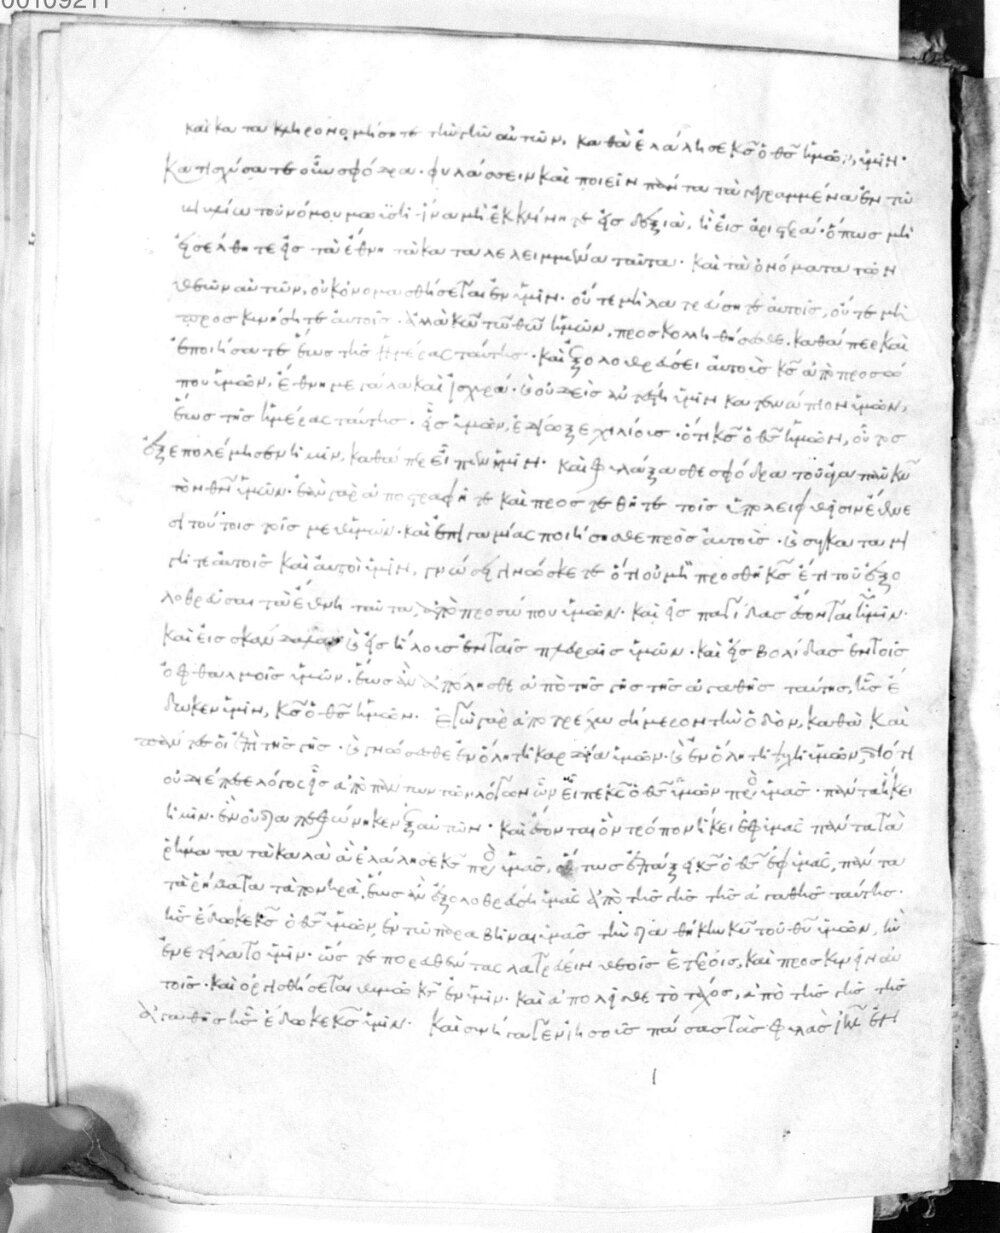 00109211
καὶ κατακληρονομήσητε τὴν γῆν αὐτῶν, καθὰ ἐλάλησε κ̅ς̅ ὁ θ̅ς̅ ἡμῶν ὑμῖν·
Κατισχύσατε οὖν σφόδρα· φυλάσσειν καὶ ποιεῖν πάντα τὰ γεγραμμένα ἐν τῷ
βιβλίῳ τοῦ νόμου μωϋσῆ· ἵνα μὴ ἐκκλίνητε εἰς δεξιὰ, ἢ εἰς ἀριστερά· ὅπως μὴ
εἰσέλθητε εἰς τὰ ἔθνη τὰ καταλελειμμένα ταῦτα· καὶ τὰ ὀνόματα τῶν
θεῶν αὐτῶν, οὐκ ὀνομασθήσεται ἐν ὑμῖν· οὔτε μὴ λατρεύσητε αὐτοῖς, οὔτε μὴ
προσκυνήσητε αὐτοῖς· ἀλλὰ κ̅ω̅ τῷ θ̅ω̅ ἡμῶν, προσκολληθήσεσθε, καθάπερ καὶ
ἐποιήσατε ἕως τῆς ἡμέρας ταύτης· καὶ ἐξολοθρεύσει αὐτοὺς κ̅ς̅ ἀπὸ προσώ
που ὑμῶν, ἔθνη μεγάλα καὶ ἰσχυρά· καὶ οὐδεὶς ἀντέστη ὑμῖν κατενώπιον ὑμῶν,
ἕως τῆς ἡμέρας ταύτης· εἷς ὑμῶν, ἐδίωξε χιλίους· ὅτι κ̅ς̅ ὁ θ̅ς̅ ἡμῶν, οὗτος
ἐξεπολέμησεν ἡμῖν, καθάπερ εἶπεν ἡμῖν· καὶ φυλάξασθε σφόδρα τοῦ ἀγαπᾶν κ̅ν̅
τὸν θ̅ν̅ ἡμῶν· ἐὰν γὰρ ἀποστραφῆτε καὶ προστεθῆτε τοῖς ὑπολειφθεῖσιν ἔθνε
σι τούτοις τοῖς μεθ' ὑμῶν· καὶ ἐπιγαμίας ποιήσησθε πρὸς αὐτοὺς· καὶ συγκαταμι
γῆτε αὐτοῖς καὶ αὐτοὶ ὑμῖν, γνώσει γινώσκετε ὅτι οὐ μὴ προσθῇ κ̅ς̅ ἔτι τοῦ ἐξο
λοθρεῦσαι τὰ ἔθνη ταῦτα, ἀπὸ προσώπου ὑμῶν· καὶ εἰς παγίδας ἔσονται ὑμῖν·
καὶ εἰς σκάνδαλα· καὶ εἰς ἥλους ἐν ταῖς πτέρναις ὑμῶν· καὶ εἰς βολίδας ἐν τοῖς
ὀφθαλμοῖς ὑμῶν· ἕως ἂν ἀπόλησθε ἀπὸ τῆς γῆς τῆς ἀγαθῆς ταύτης, ἧς ἔ
δωκεν ὑμῖν, κ̅ς̅ ὁ θ̅ς̅ ἡμῶν· ἐγὼ γὰρ ἀποτρέχω σήμερον τὴν ὁδὸν, καθὰ καὶ
πάντες οἱ ἐπὶ τῆς γῆς· καὶ γνώσεσθε ἐν ὅλῃ τῇ καρδίᾳ ὑμῶν· καὶ ἐν ὅλῃ τῇ ψυχῇ ὑμῶν, διότι
οὐ διέπεσε λόγος εἷς ἀπὸ πάντων τῶν λόγων ὧν εἶπε κ̅ς̅ ὁ θ̅ς̅ ὑμῶν πρὸς ὑμᾶς· πάντα ἥκει
ἡμῖν· ἓν οὐ διαπεφώνηκεν ἐξ αὐτῶν· καὶ ἔσονται ὃν τρόπον ἥκει ἐφ' ὑμᾶς πάντα τὰ
ῥήματα τὰ καλὰ ἃ ἐλάλησε κ̅ς̅ πρὸς ὑμᾶς, οὕτως ἐπάξει κ̅ς̅ ὁ θ̅ς̅ ἐφ' ὑμᾶς, πάντα
τὰ ῥήματα τὰ πονηρὰ, ἕως ἂν ἐξολοθρεύσῃ ὑμᾶς ἀπὸ τῆς γῆς τῆς ἀγαθῆς ταύτης·
ἧς ἔδωκε κ̅ς̅ ὁ θ̅ς̅ ὑμῶν, ἐν τῷ παραβῆναι ὑμᾶς τὴν διαθήκην κ̅υ̅ τοῦ θ̅υ̅ ὑμῶν, ἣν
ἐνετείλατο ὑμῖν· ὥστε πορευθέντας λατρεύειν θεοῖς ἑτέροις, καὶ προσκυνεῖν αὐ
τοῖς· καὶ ὀργισθήσεται θυμῷ κ̅ς̅ ἐν ὑμῖν· καὶ ἀπολεῖσθε τὸ τάχος, ἀπὸ τῆς γῆς τῆς
ἀγαθῆς ἧς ἔδωκε κ̅ς̅ ὑμῖν· Καὶ συνήγαγεν ἰησοῦς πάσας τὰς φυλὰς ι̅η̅λ̅ εἰς